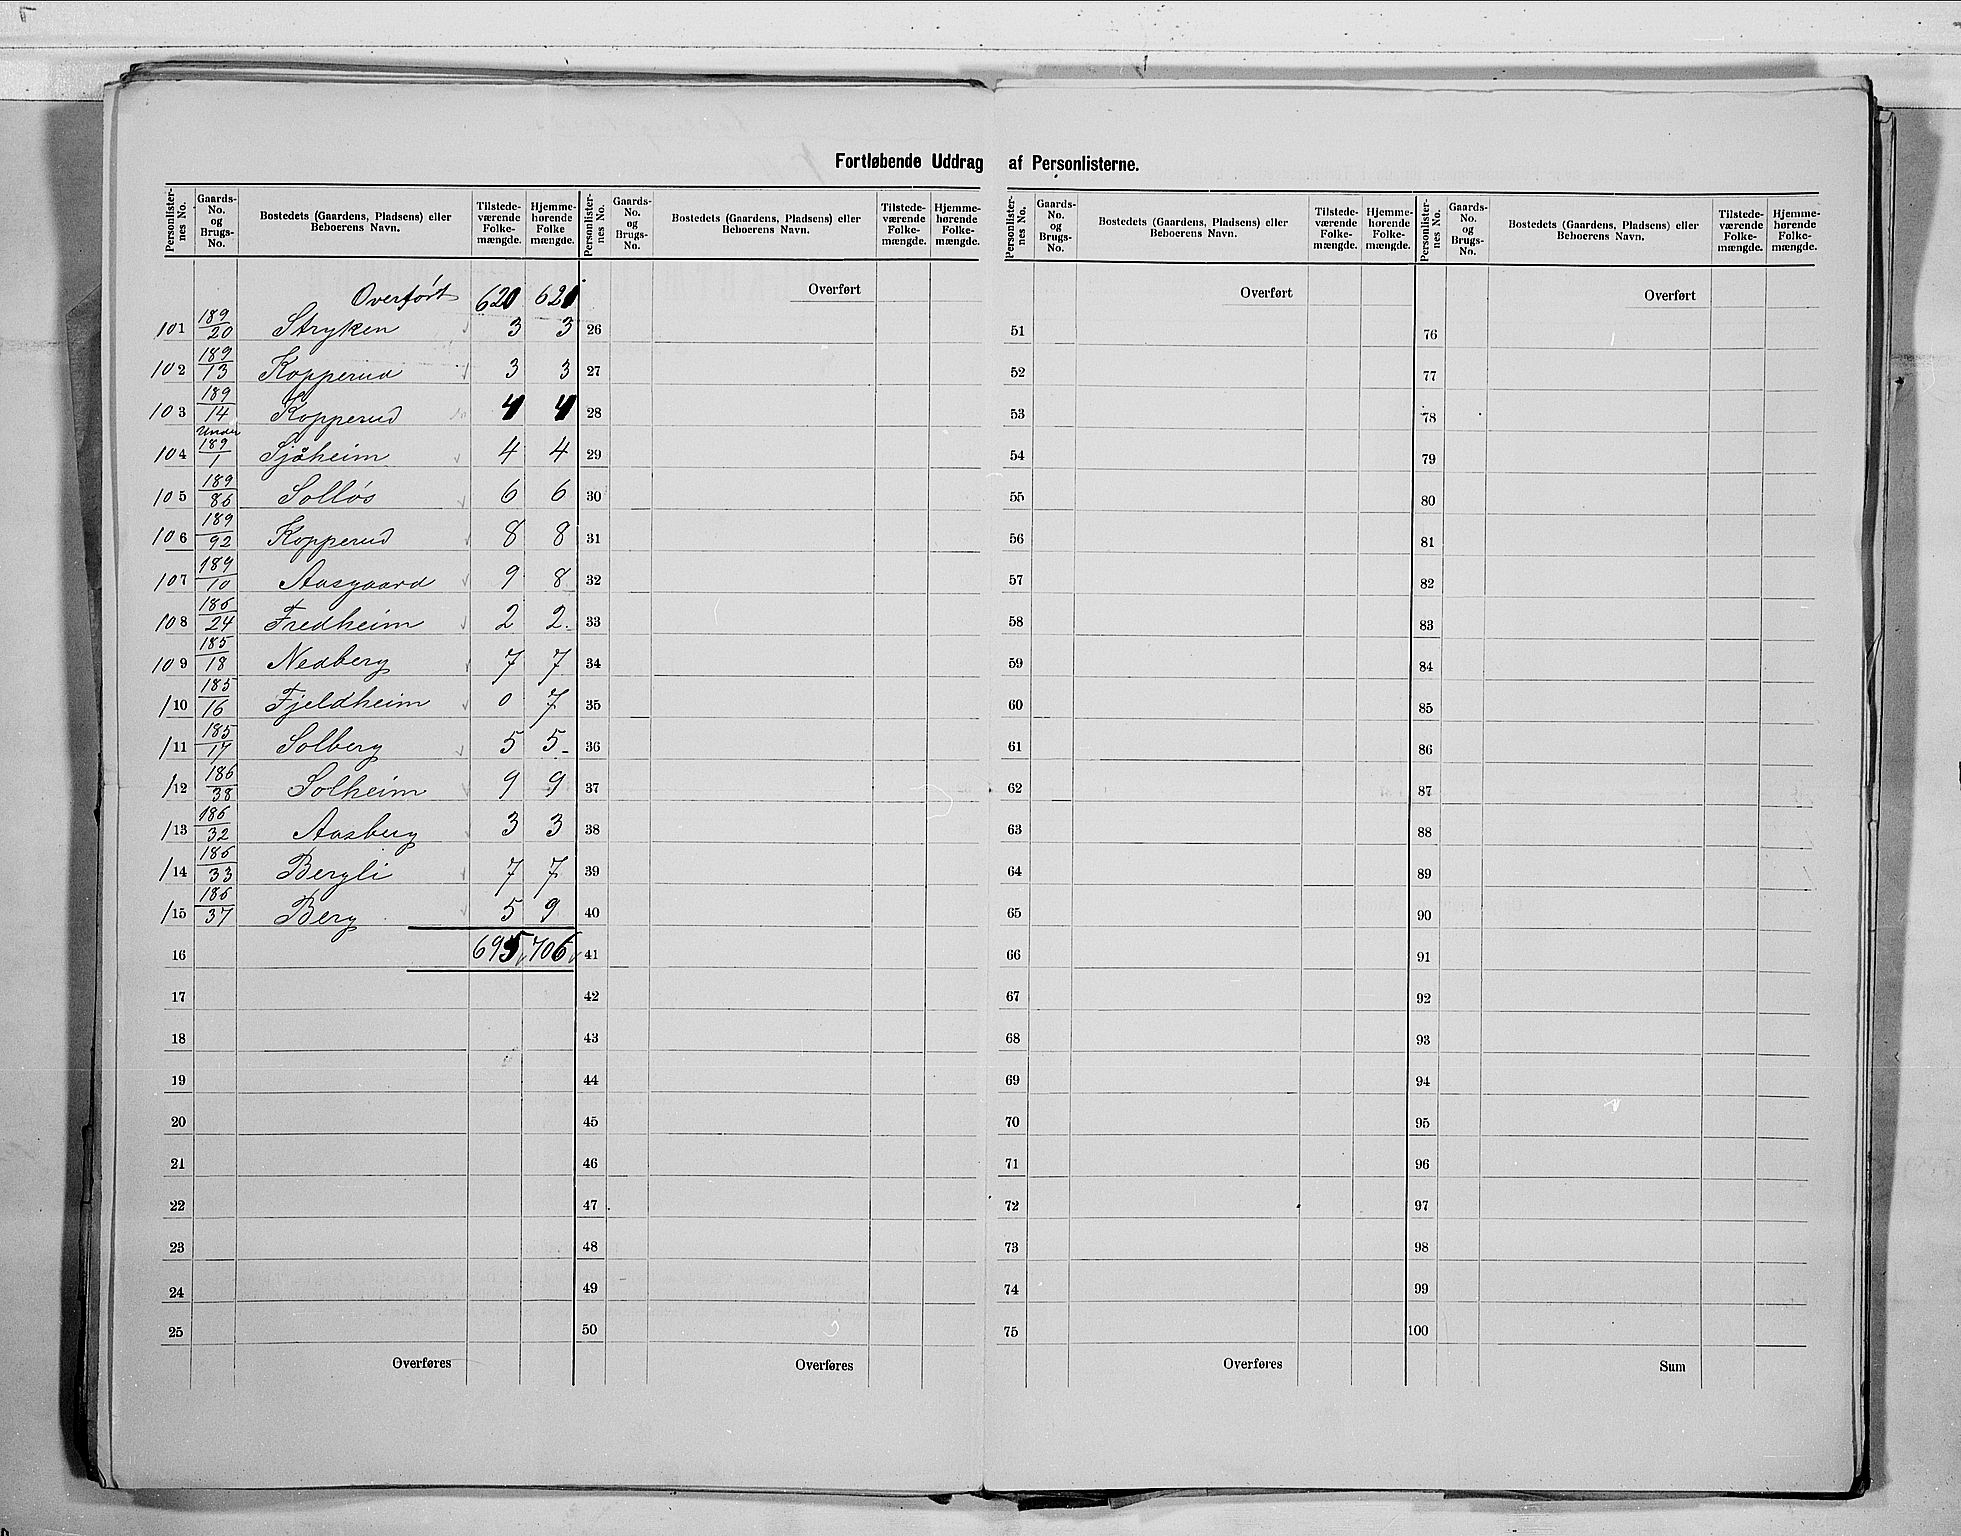 Fortløbende Uddrag af Personlisterne.
Personlisternes No. | Gaards-No. og Brugs-No. | Bostedets (Gaardens, Pladsens) eller Beboerens Navn. | Tilstedeværende Folkemængde. | Hjemmehørende Folkemængde.
Overført 620 621
101 189/20 Stryken 3 3
102 189/13 Kopperud 3 3
103 189/14 Kopperud 4 4
104 Under 189/1 Sjøheim 4 4
105 189/86 Solløs 6 6
106 189/92 Kopperud 8 8
107 189/10 Aasgaard 9 8
108 186/24 Fredheim 2 2
109 185/18 Nedberg 7 7
110 185/16 Fjeldheim 0 7
111 185/17 Solberg 5 5
112 186/38 Solheim 9 9
113 186/32 Aasberg 3 3
114 186/33 Bergli 7 7
115 186/37 Berg 5 9
16 695 706
17
18
19
20
21
22
23
24
25
Overføres
Personlisternes No. | Gaards-No. og Brugs-No. | Bostedets (Gaardens, Pladsens) eller Beboerens Navn. | Tilstedeværende Folkemængde. | Hjemmehørende Folkemængde.
Overført
26
27
28
29
30
31
32
33
34
35
36
37
38
39
40
41
42
43
44
45
46
47
48
49
50
Overføres
Personlisternes No. | Gaards-No. og Brugs-No. | Bostedets (Gaardens, Pladsens) eller Beboerens Navn. | Tilstedeværende Folkemængde. | Hjemmehørende Folkemængde.
Overført
51
52
53
54
55
56
57
58
59
60
61
62
63
64
65
66
67
68
69
70
71
72
73
74
75
Overføres
Personlisternes No. | Gaards-No. og Brugs-No. | Bostedets (Gaardens, Pladsens) eller Beboerens Navn. | Tilstedeværende Folkemængde. | Hjemmehørende Folkemængde.
Overført
76
77
78
79
80
81
82
83
84
85
86
87
88
89
90
91
92
93
94
95
96
97
98
99
100
Sum